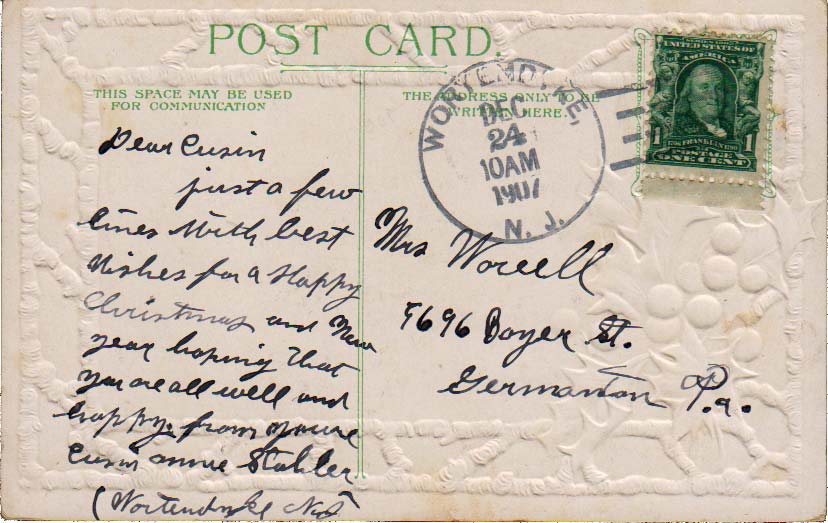 POST CARD.
THIS SPACE MAY BE USED
FOR COMMUNICATION
THE ADDRESS ONLY TO BE
WRITTEN HERE.
WORTENDYKE,
DEC
24
10AM
1907
N. J.
SERIES 1902
UNITED STATES OF
AMERICA
1706 FRANKLIN 1790
POSTAGE
1 ONE CENT 1
Dear Cusin
just a few
lines With best
Wishes for a Happy
Christmas and New
year hoping that
you are all well and
happy. from youre
Cusin annie Stahler
(Wortendyke N.J
Mrs Worell
5696 Boyer St.
Germanton Pa.